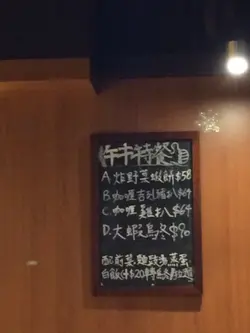 午市特餐
A.炸野菜蝦餅$58
B.咖喱吉列豬扒$64
C.咖喱雞扒$64
D.大蝦烏冬$70
配前菜,麵豉湯,蒸蛋
白飯(+$20轉